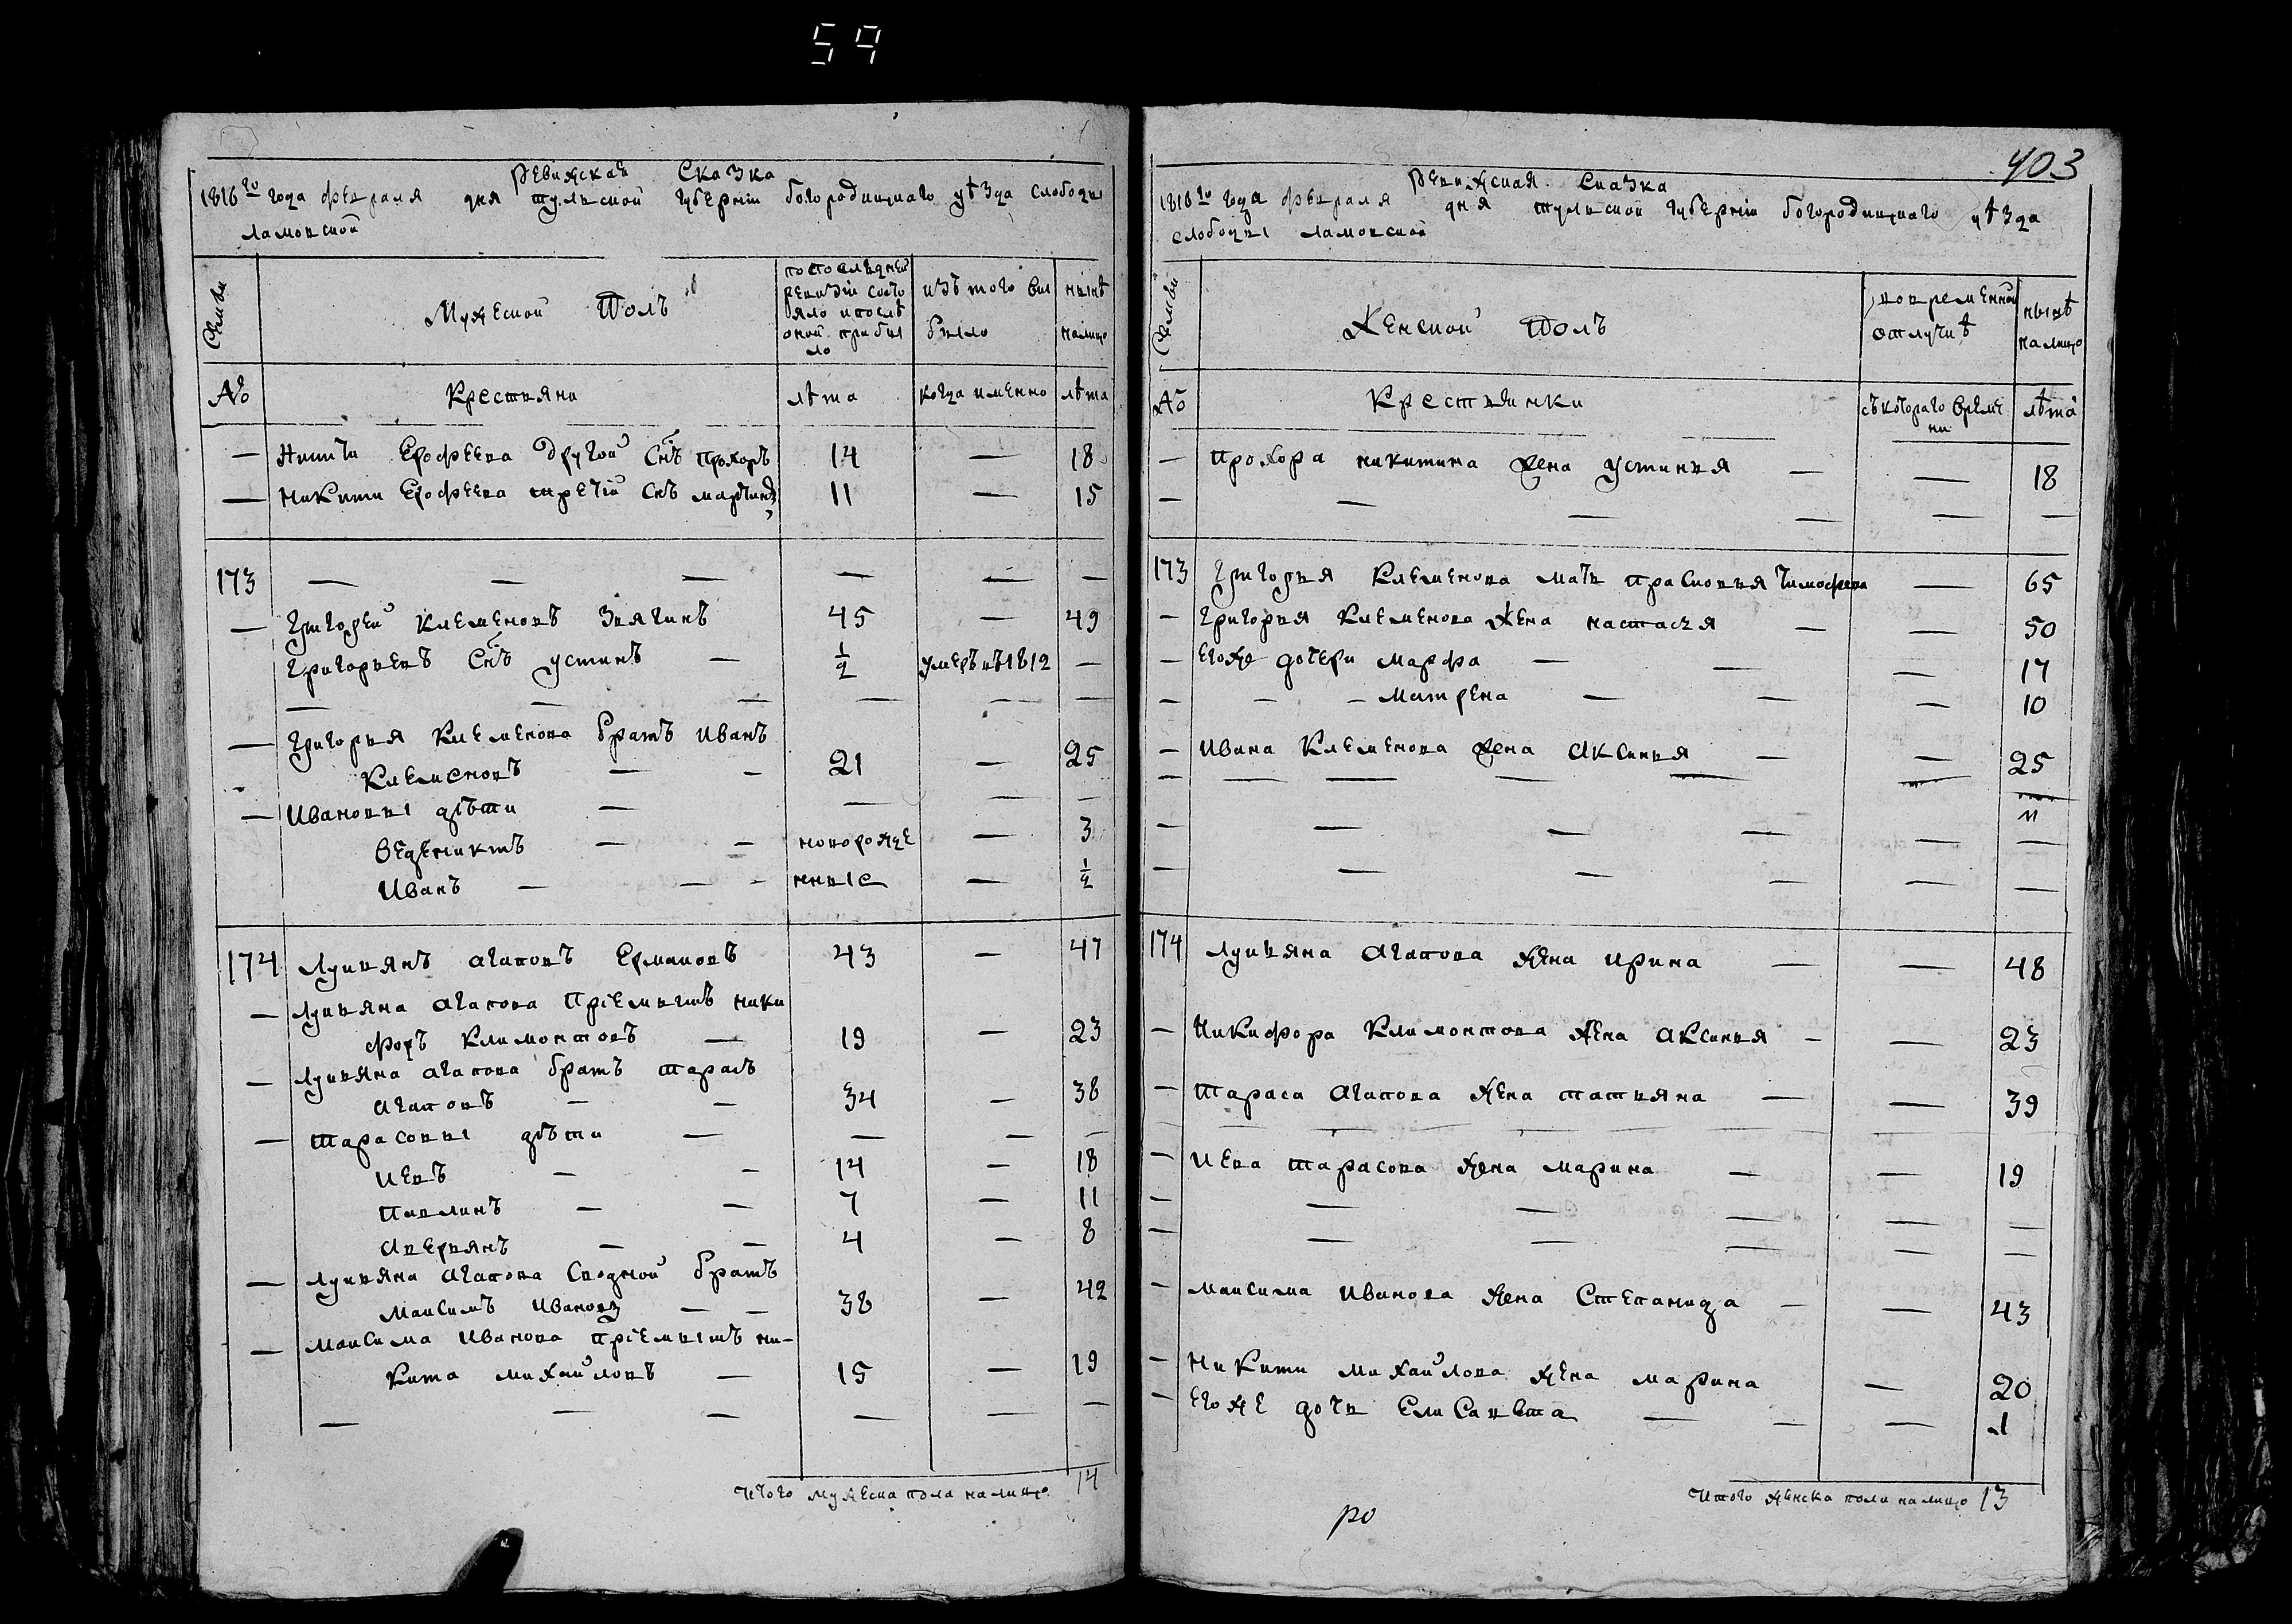 59
403
Ревижская Сказка
1816го года февраля дня тульской губерніи богородицкаго уѣзда слободы
ламовской
Семьи
Мужеской Полъ
попослѣдней
ревизіи состо
яло ипослѣ
оной прибы
ло
изъ того вы
было
нынѣ
налицо
№
Крестьяни
лѣта
когда именно
лѣта
— Никиты Ерофеева другой Снъ прохоръ 14 — 18
— Никиты Ерофеева третій Снъ мартинъ 11 — 15
173 — — — — — —
— Григорей Клеменовъ Звягинъ 45 — 49
Григорьевъ Снъ устинъ — ½ умеръ въ 1812 —
— — — — — —
— Григорья Клеменова братъ Иванъ
Клеменовъ — - 21 — 25
— Ивановы дѣти — — — —
Веденихтъ — - новорожде — 3
Иванъ — — - нные — ½
174 Лукьянъ агаповъ Ермаковъ 43 — 47
— Лукьяна агапова Пріемышъ ники
форъ Климонтовъ — 19 — 23
— Лукьяна агапова братъ тарасъ
агаповъ — — 34 — 38
— тарасовы дѣти — — — —
Иевъ — - 14 — 18
Павлинъ — — 7 — 11
Аверьянъ — — 4 — 8
— Лукьяна агапова Сводной братъ
Максимъ Ивановъ — — 38 — 42
— Максима Иванова пріемышъ ни-
кита михайловъ — 15 — 19
— — — — — —
Итого мужеска пола налицо 14
Ревижская Сказка
1816го года февраля дня тульской губерніи богородицкаго уѣзда
слободы ламовской
Семьи
Женской Полъ
вовременной
отлучкѣ
нынѣ
налицо
№
Крестьянки
съкотораго време
ни
лѣта
— Прохора никитина жена устинья — — 18
— — — — — —
173 Григорья Клеменова мать прасковья тимофева — 65
— Григорья Клеменова жена настасья — — 50
— Егоже дочери марфа — — — 17
— - - Матрена — — — 10
— Ивана Клеменова жена аксинья — — 25
— — — — — — —
— — — — — —
— — — — — —
174 Лукьяна агапова жена ирина — — 48
— Никифора Климонтова жена аксинья - — 23
— Тараса агапова жена татьяна — — 39
— Иева тарасова жена марина — — 19
— — — — — —
— — — — — —
— Максима Иванова жена Степанида — — 43
— Никиты михайлова жена марина — 20
— Егоже дочь Елисавета — — — 1
Итого женска пола налицо 13
ро